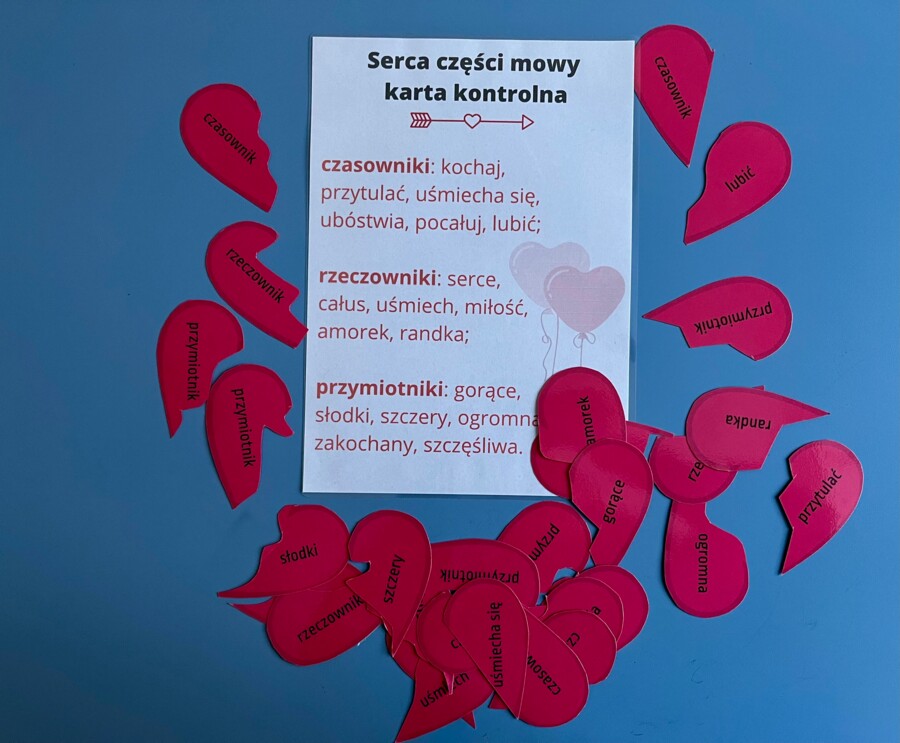 Serca części mowy
karta kontrolna
czasowniki: kochaj,
przytulać, uśmiecha się,
ubóstwia, pocałuj, lubić;
rzeczowniki: serce,
całus, uśmiech, miłość,
amorek, randka;
przymiotniki: gorące,
słodki, szczery, ogromna
zakochany, szczęśliwa.
czasownik
czasownik
lubić
rzeczownik
przymiotnik
przymiotnik
przymiotnik
amorek
randka
rze
gorące
przytulać
ogromna
słodki
szczery
przym
przymiotnik
rzeczownik
uśmiecha się
uśmiech
czasow